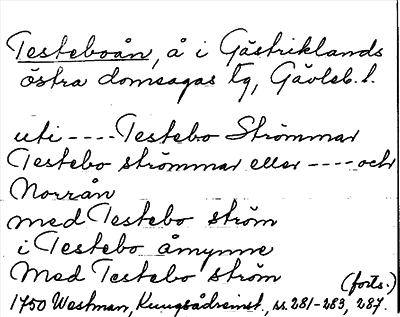 Testeboån, å i Gästriklands
östra domsagas tg, Gävleb. l.
uti ---- Testebo Strömmar
Testebo strömmar eller ---- och
Norrån
med Testebo ström
i Testebo åmynne
Med Testebo ström (forts.)
1750 Westman, Kungsådreinst., ss. 281-283, 287.